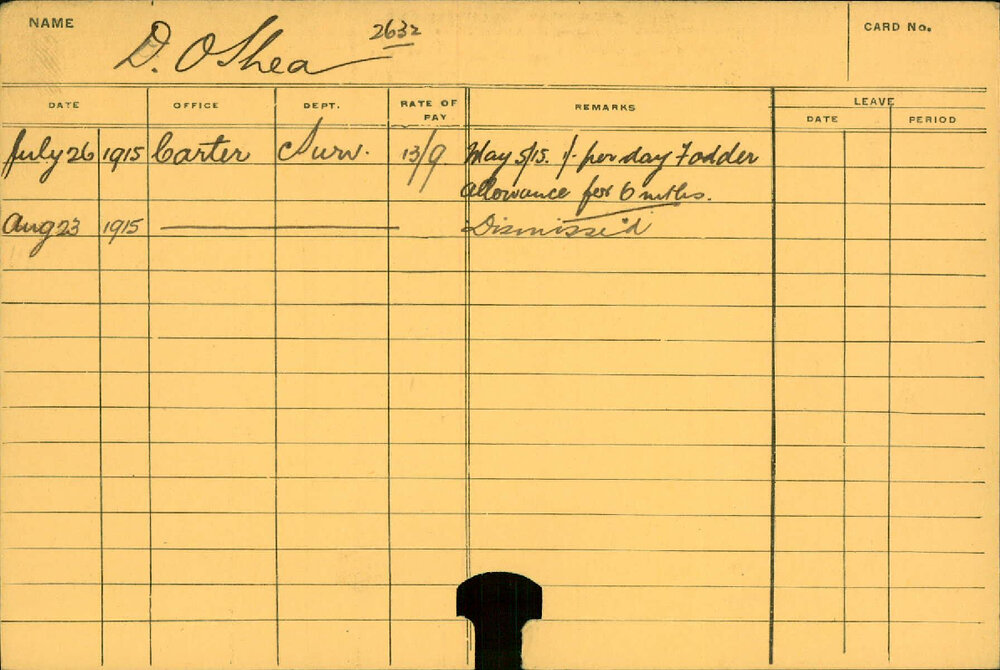 NAME
D. O'Shea 2632
CARD No.
DATE OFFICE DEPT. RATE OF PAY REMARKS LEAVE
DATE PERIOD
July 26 1915 Carter Surv. 13/9 May 5/15. 1/- per day Fodder
allowance for 6 mths.
Aug 23 1915 Dismissed